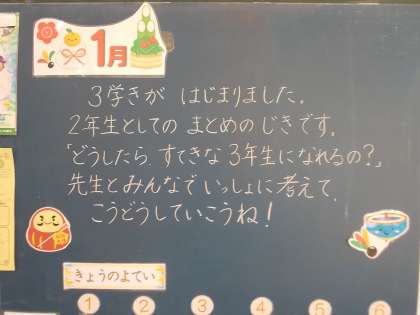 1月
3学きが はじまりました.
2年生としての まとめの じきです.
「どうしたら, すてきな 3年生になれるの?」
先生と みんなで いっしょに 考えて,
こうどうしていこうね!
きょうのよてい
1 2 3 4 5 6